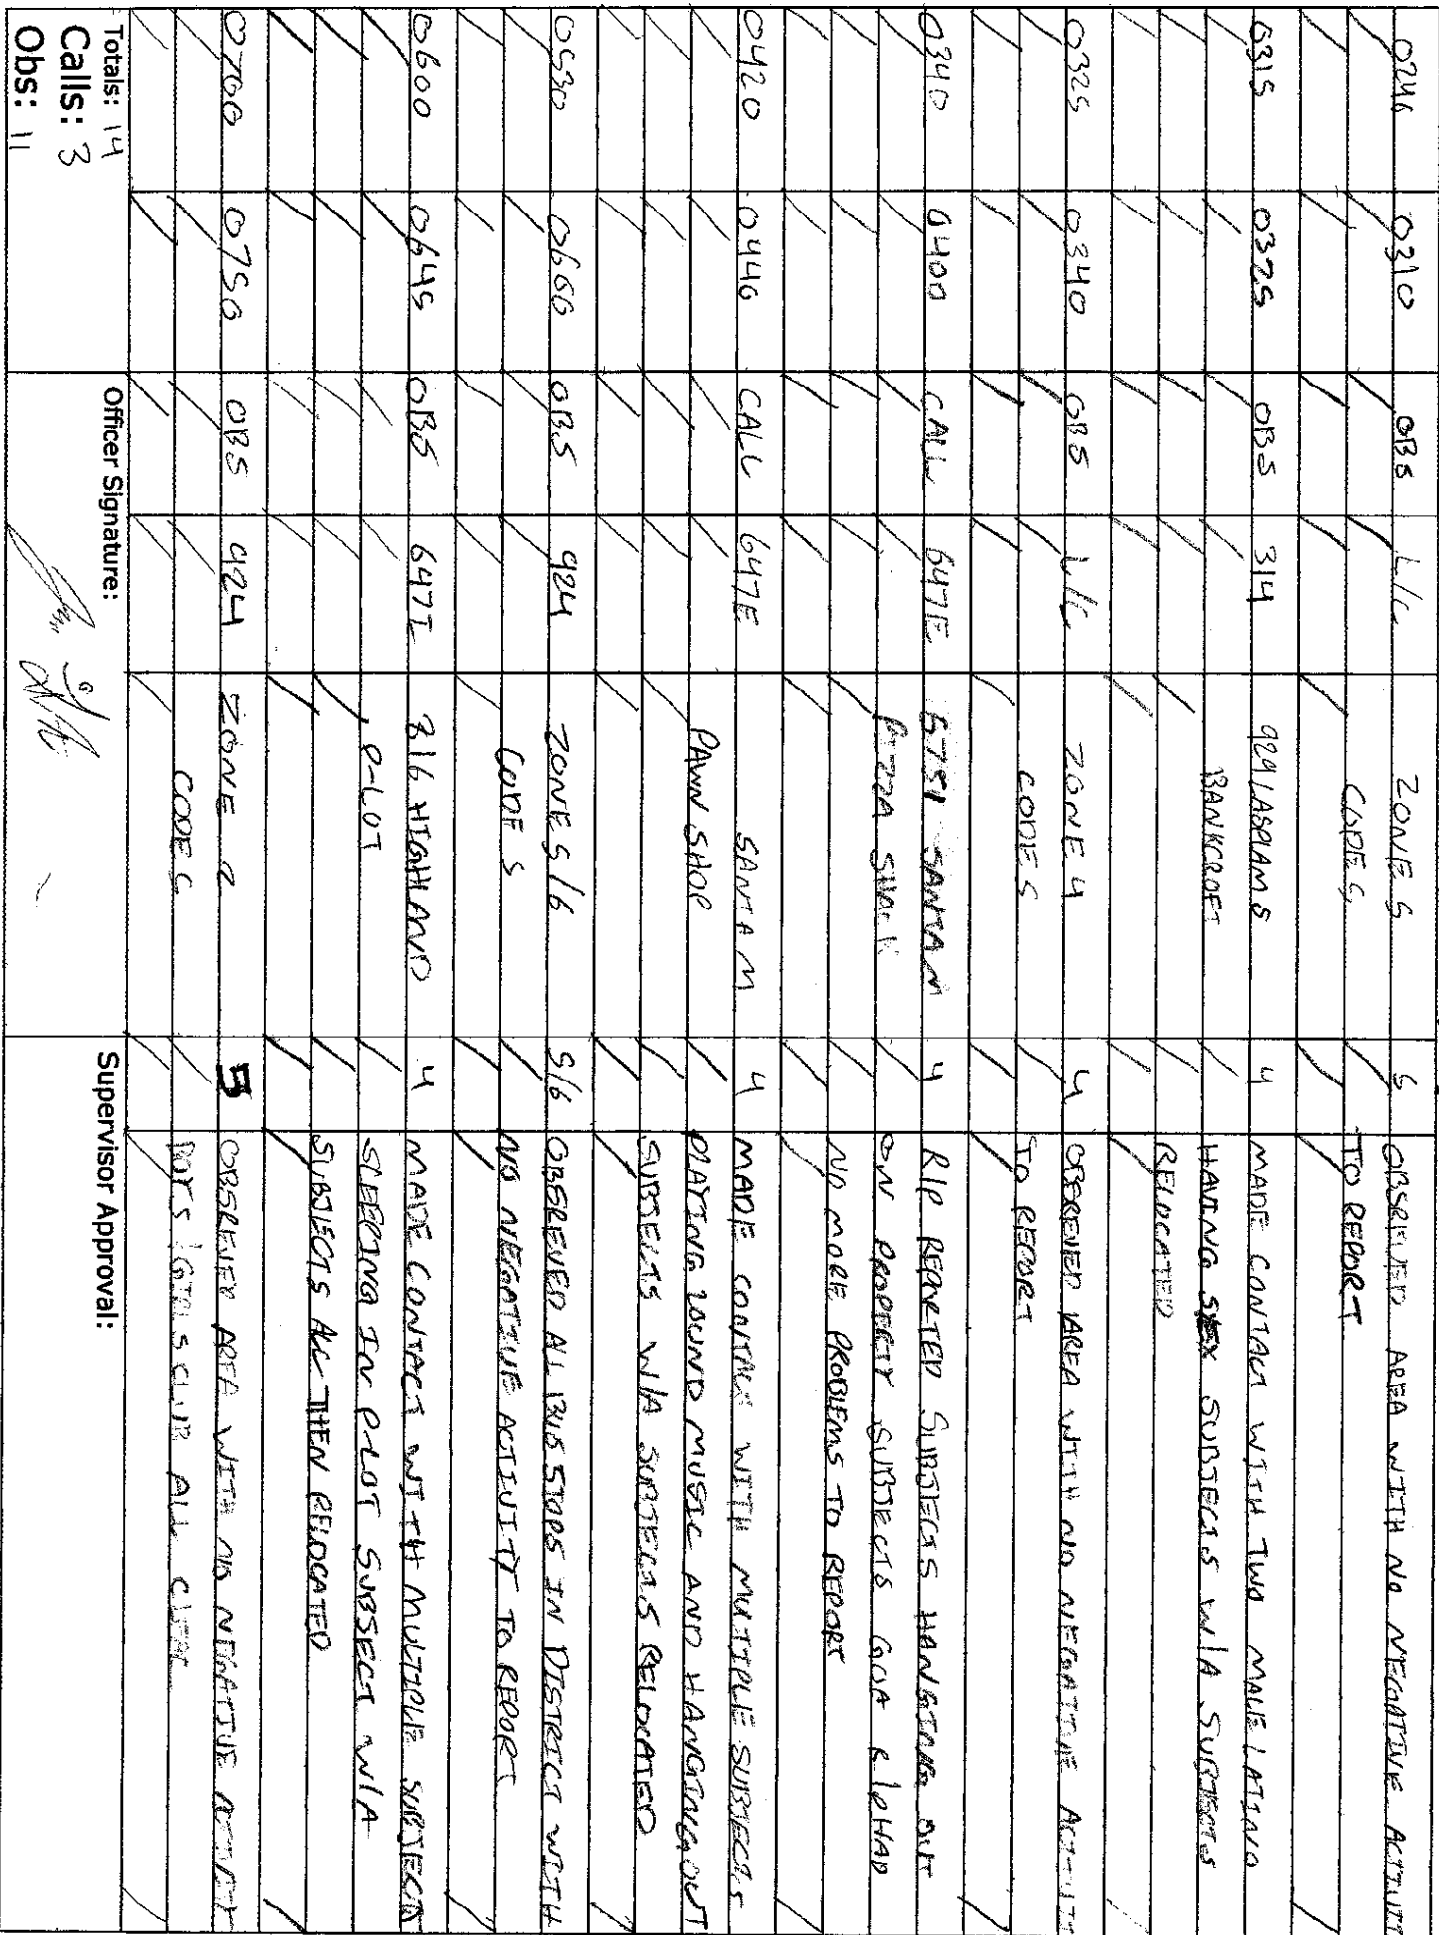 0246 0310 OBS L/C ZONE 5 5 OBSREVED AREA WITH NO NEGATIVE ACTIVIT
CODE 5 TO REPORT
0315 0325 OBS 314 929 LASPAMS 4 MADE CONTACT WITH TWO MALE LATINO
BANKCROFT HAVING SEX SUBJECTS W/A SUBJECTS
RELOCATED
0325 0340 OBS L/C ZONE 4 4 OBSREVED AREA WITH NO NEGATIVE ACTIVIT
CODE 5 TO REPORT
0340 0400 CALL 647E 6751 SANTAM 4 R/P REPORTED SUBJECTS HANGING OUT
PIZZA SHACK ON PROPERTY SUBJECTS GOA R/P HAD
NO MORE PROBLEMS TO REPORT
0420 0440 CALL 647E SANTA M 4 MADE CONTACT WITH MUTIPLE SUBJECTS
PAWN SHOP PLAYING LOUND MUSIC AND HANGINGG OUT
SUBJECTS W/A SUBJECTS RELOCATED
0530 0600 OBS 924 ZONE 5/6 5/6 OBSREVED AL BUS STOPS IN DISTRICT WITH
CODE 5 NO NEGATIVE ACTIVITY TO REPORT
0600 0645 OBS 647I 816 HIGHLAND 4 MADE CONTACT WITH MULTIPLE SUBJECTS
P-LOT SLEEPING IN P-LOT SUBSECT W/A
SUBJECTS ALL THEN RELOCATED
0700 0750 OBS 924 ZONE 2 5 OBSREVED AREA WITH NO NEGATIVE ACTIVITY
CODE 5 ALL CLEAR
Totals: 14
Calls: 3
Obs: 11
Officer Signature:
Supervisor Approval: